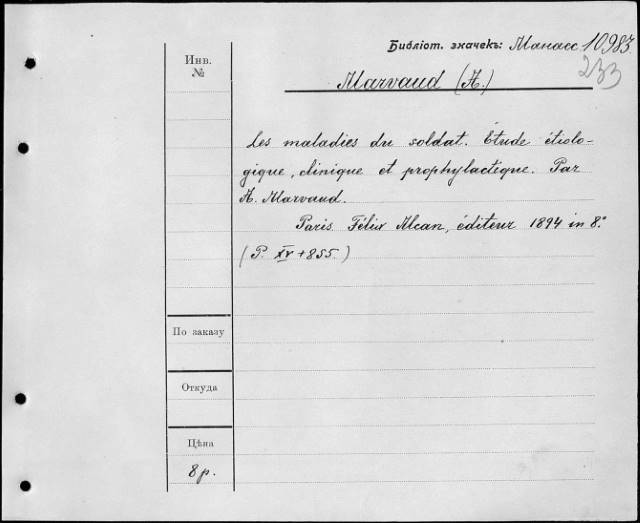 Библіот. значекъ: Манасс 10983
Инв.
№
233
Marvaud (A.)
Les maladies du soldat. Etude étiolo-
gique, clinique et prophylactique. Par
A. Marvaud.
Paris. Félix Alcan, éditeur 1894 in 8.°
(P. XV + 855.)
По заказу
Откуда
Цѣна
8 р.